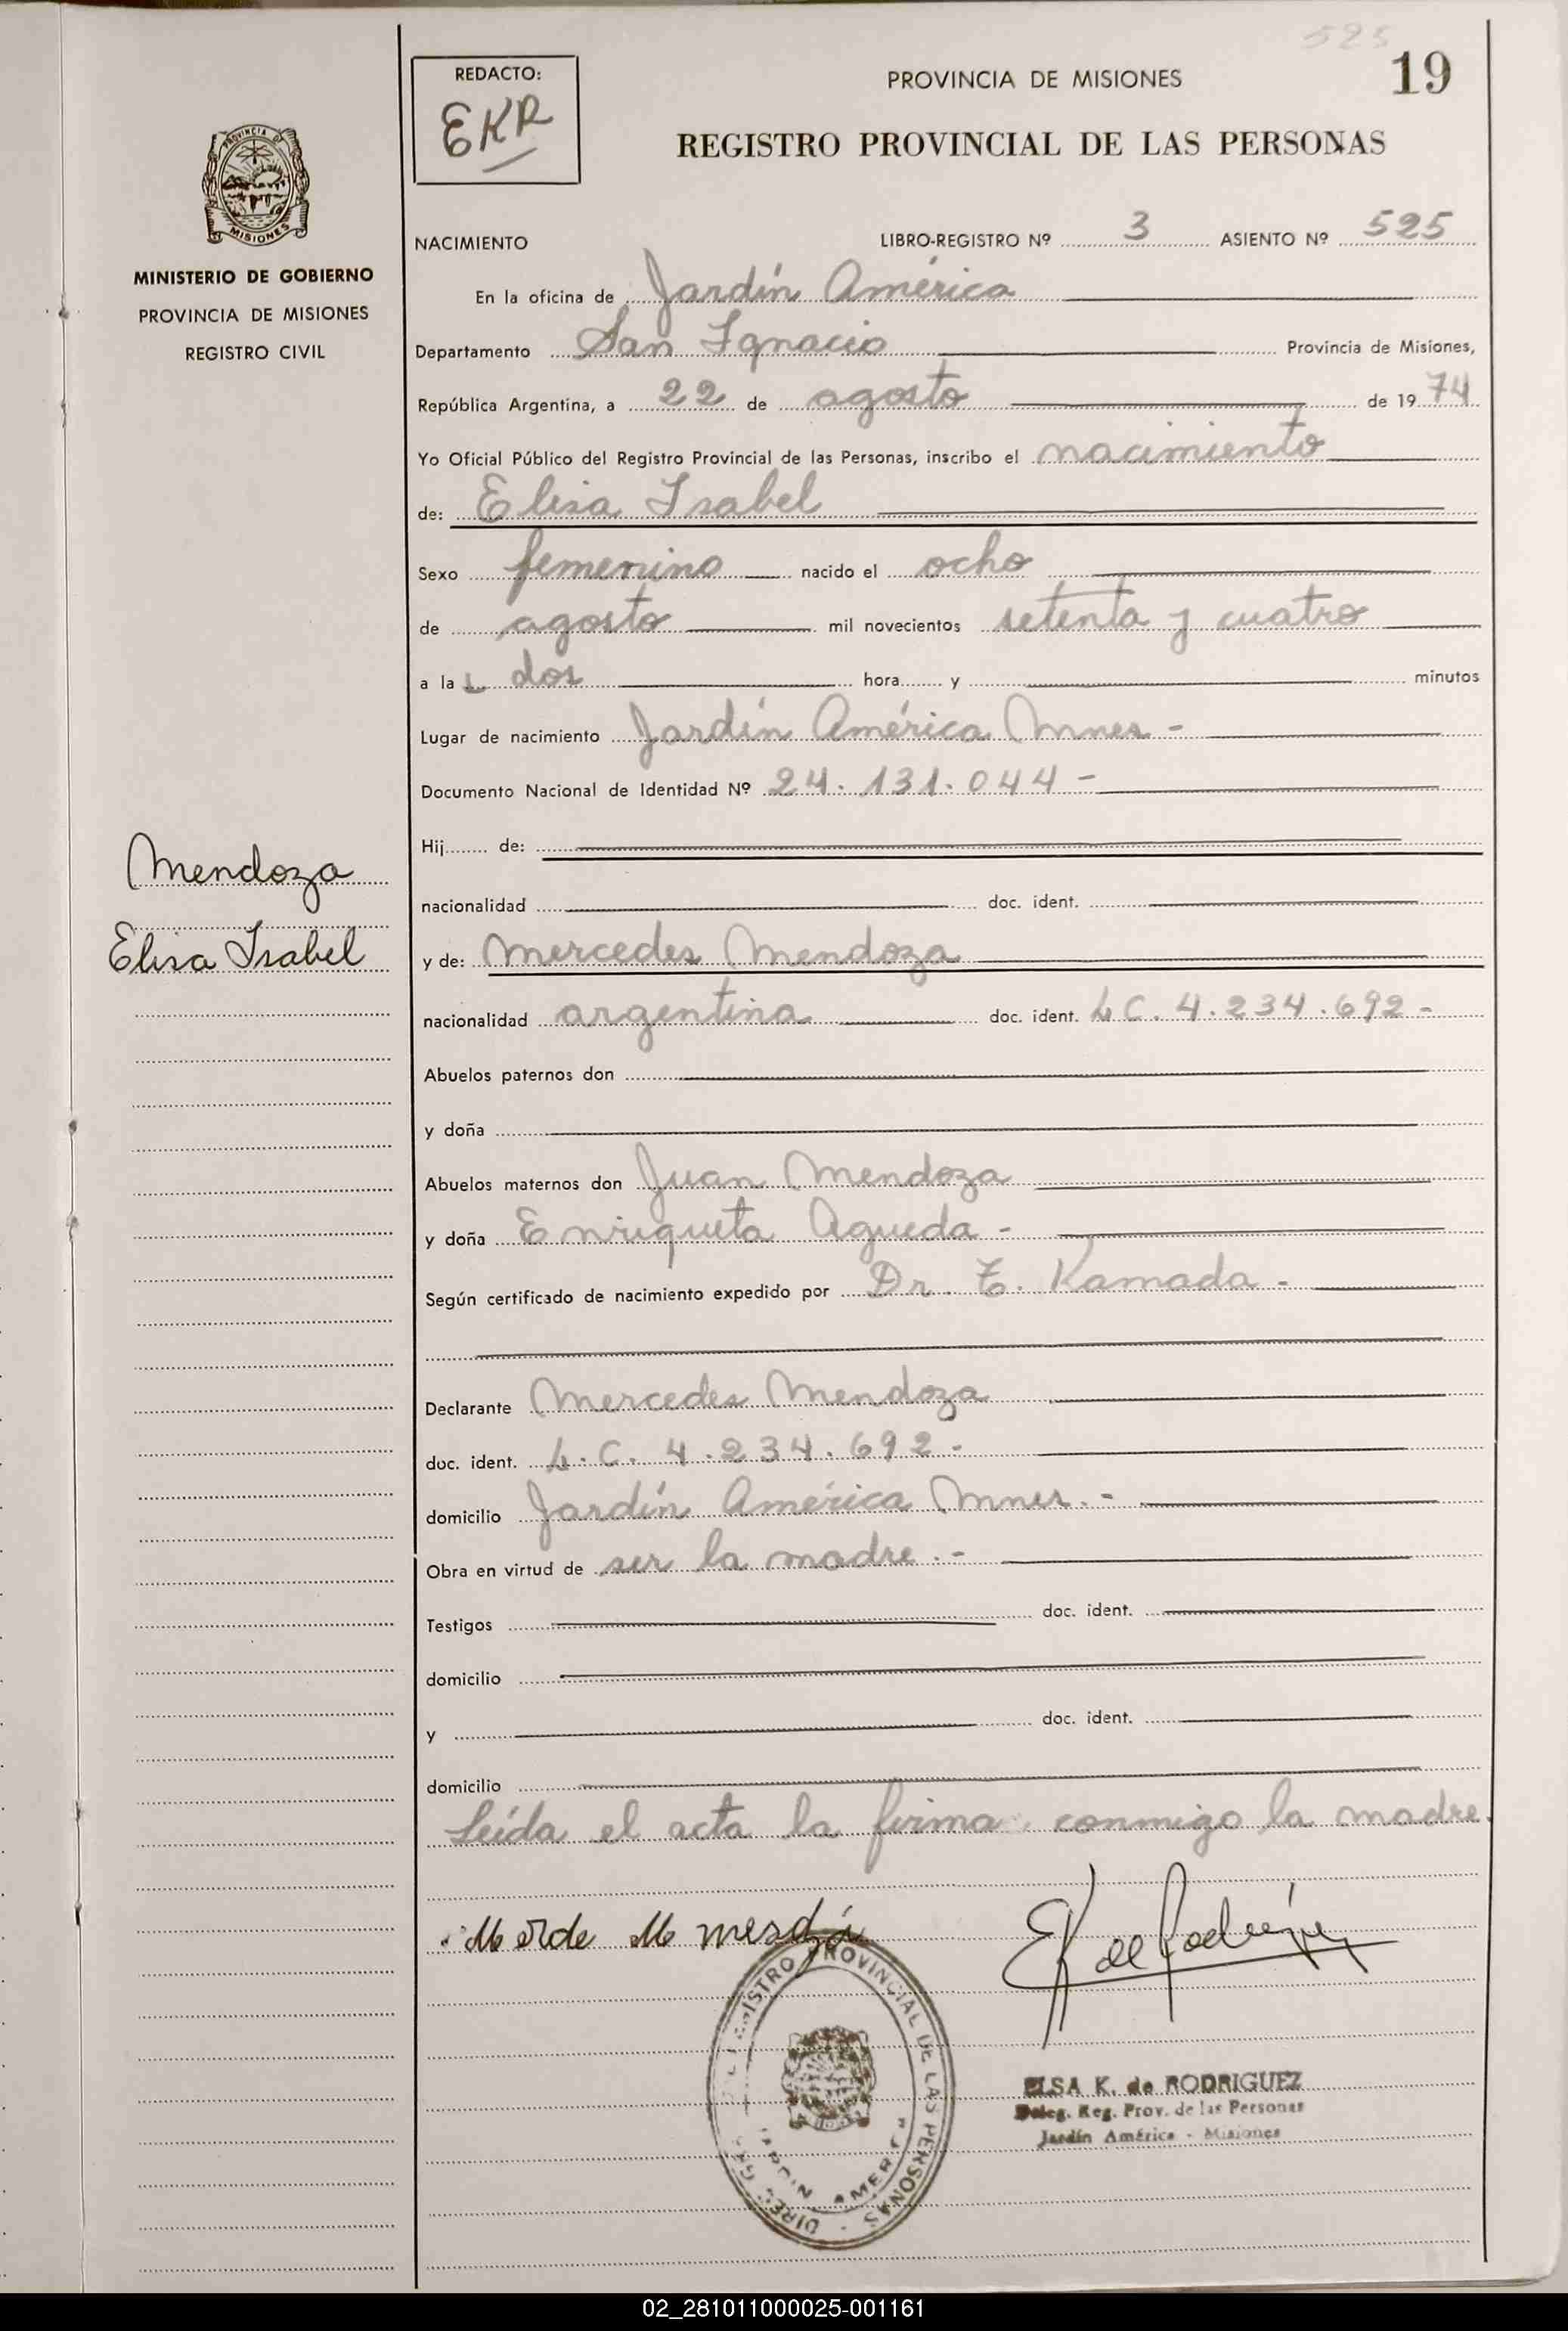 525
19
REDACTO:
EKR
PROVINCIA DE MISIONES
REGISTRO PROVINCIAL DE LAS PERSONAS
PROVINCIA DE
MISIONES
MINISTERIO DE GOBIERNO
PROVINCIA DE MISIONES
REGISTRO CIVIL
NACIMIENTO LIBRO-REGISTRO Nº 3 ASIENTO Nº 525
En la oficina de Jardín América
Departamento San Ignacio Provincia de Misiones,
República Argentina, a 22 de agosto de 19 74
Yo Oficial Público del Registro Provincial de las Personas, inscribo el nacimiento
de: Elisa Isabel
Sexo femenino nacido el ocho
de agosto mil novecientos setenta y cuatro
a la s dos hora y minutos
Lugar de nacimiento Jardín América Mnes -
Documento Nacional de Identidad Nº 24.131.044 -
Hij de:
nacionalidad doc. ident.
Mendoza
Elisa Isabel
y de: Mercedes Mendoza
nacionalidad argentina doc. ident. L C. 4.234.692 -
Abuelos paternos don
y doña
Abuelos maternos don Juan Mendoza
y doña Enriqueta Agueda -
Según certificado de nacimiento expedido por Dr. T. Kamada -
Declarante Mercedes Mendoza
doc. ident. L. C. 4.234.692 -
domicilio Jardín América Mnes. -
Obra en virtud de ser la madre. -
Testigos doc. ident.
domicilio
y doc. ident.
domicilio
Leída el acta la firma conmigo la madre.
EK de Rodríguez
REGISTRO PROVINCIAL DE LAS PERSONAS -
JARDIN AMERICA
ELSA K. de RODRIGUEZ
Deleg. Reg. Prov. de las Personas
Jardín América - Misiones
02_281011000025-001161